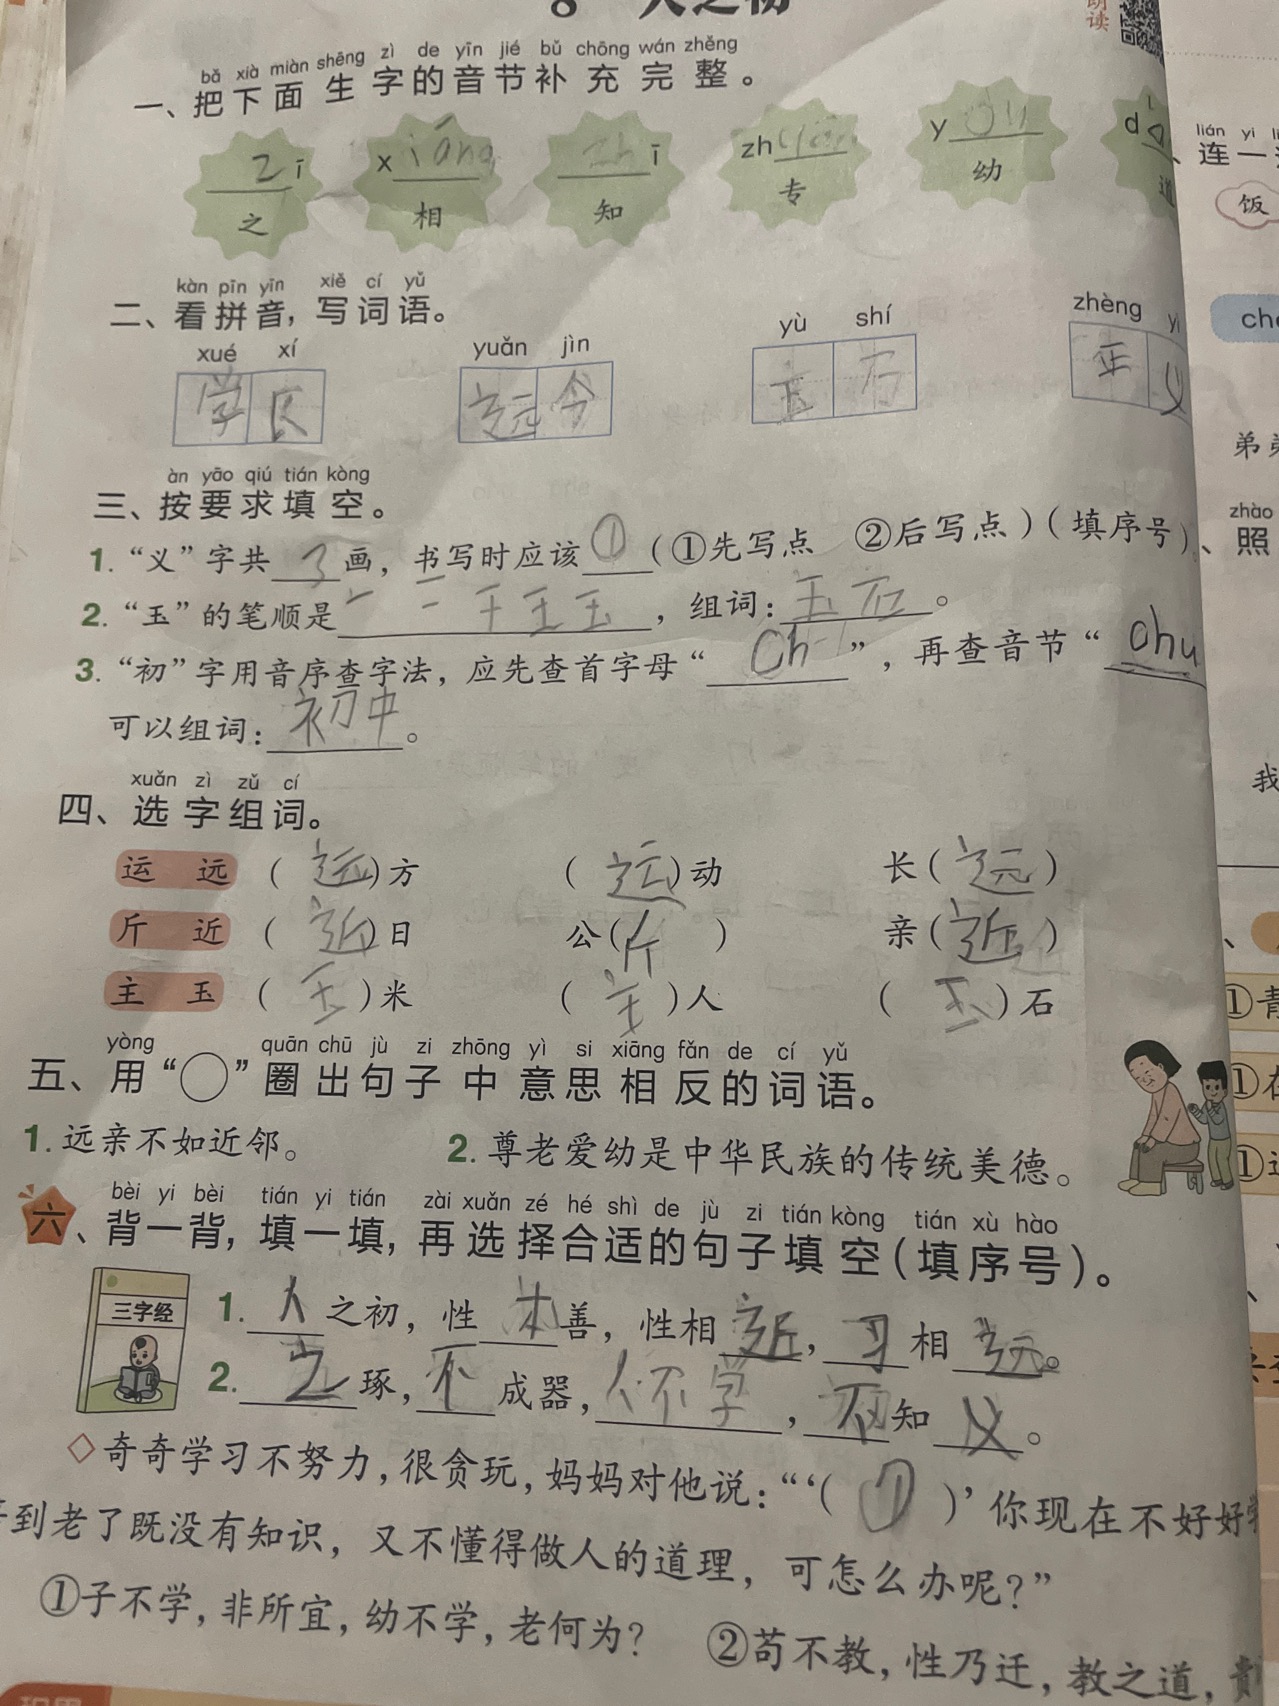 8 人之初
朗读
bǎ xià miàn shēng zì de yīn jié bǔ chōng wán zhěng
一、把下面生字的音节补充完整。
z ī x iāng zh ī zh uān y òu d
之 相 知 专 幼 道
kàn pīn yīn, xiě cí yǔ
二、看拼音，写词语。
xué xí yuǎn jìn yù shí zhèng yì
学 远 玉 石 正 义
àn yāo qiú tián kòng
三、按要求填空。
1. “义”字共 3 画，书写时应该 ① (①先写点 ②后写点)(填序号)
2. “玉”的笔顺是 一 二 千 王 玉，组词：玉石。
3. “初”字用音序查字法，应先查首字母“Ch”，再查音节“chu
可以组词：初中。
xuǎn zì zǔ cí
四、选字组词。
运 远 (远)方 (运)动 长(远)
斤 近 (近)日 公(斤) 亲(近)
主 玉 (玉)米 (主)人 (玉)石
yòng quān chū jù zi zhōng yì si xiāng fǎn de cí yǔ
五、用“○”圈出句子中意思相反的词语。
1. 远亲不如近邻。 2. 尊老爱幼是中华民族的传统美德。
bèi yi bèi tián yi tián zài xuǎn zé hé shì de jù zi tián kòng tián xù hào
六、背一背，填一填，再选择合适的句子填空(填序号)。
三字经
1. 人之初，性本善，性相近，习相远。
2. 琢，不成器，人不学，不知义。
◇奇奇学习不努力，很贪玩，妈妈对他说：“‘(①)’你现在不好好学
到老了既没有知识，又不懂得做人的道理，可怎么办呢？”
①子不学，非所宜，幼不学，老何为？ ②苟不教，性乃迁，教之道，贵
lián yi
连一
饭
弟弟
zhào
照
我
①青
①在